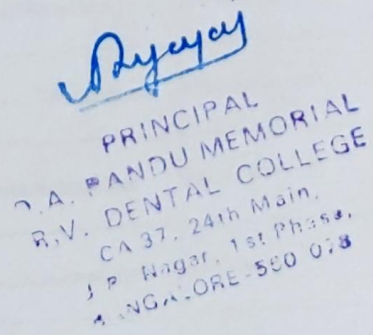 PRINCIPAL
D.A. PANDU MEMORIAL
R.V. DENTAL COLLEGE
CA 37, 24th Main,
J.P. Nagar, 1st Phase,
BANGALORE-560 078